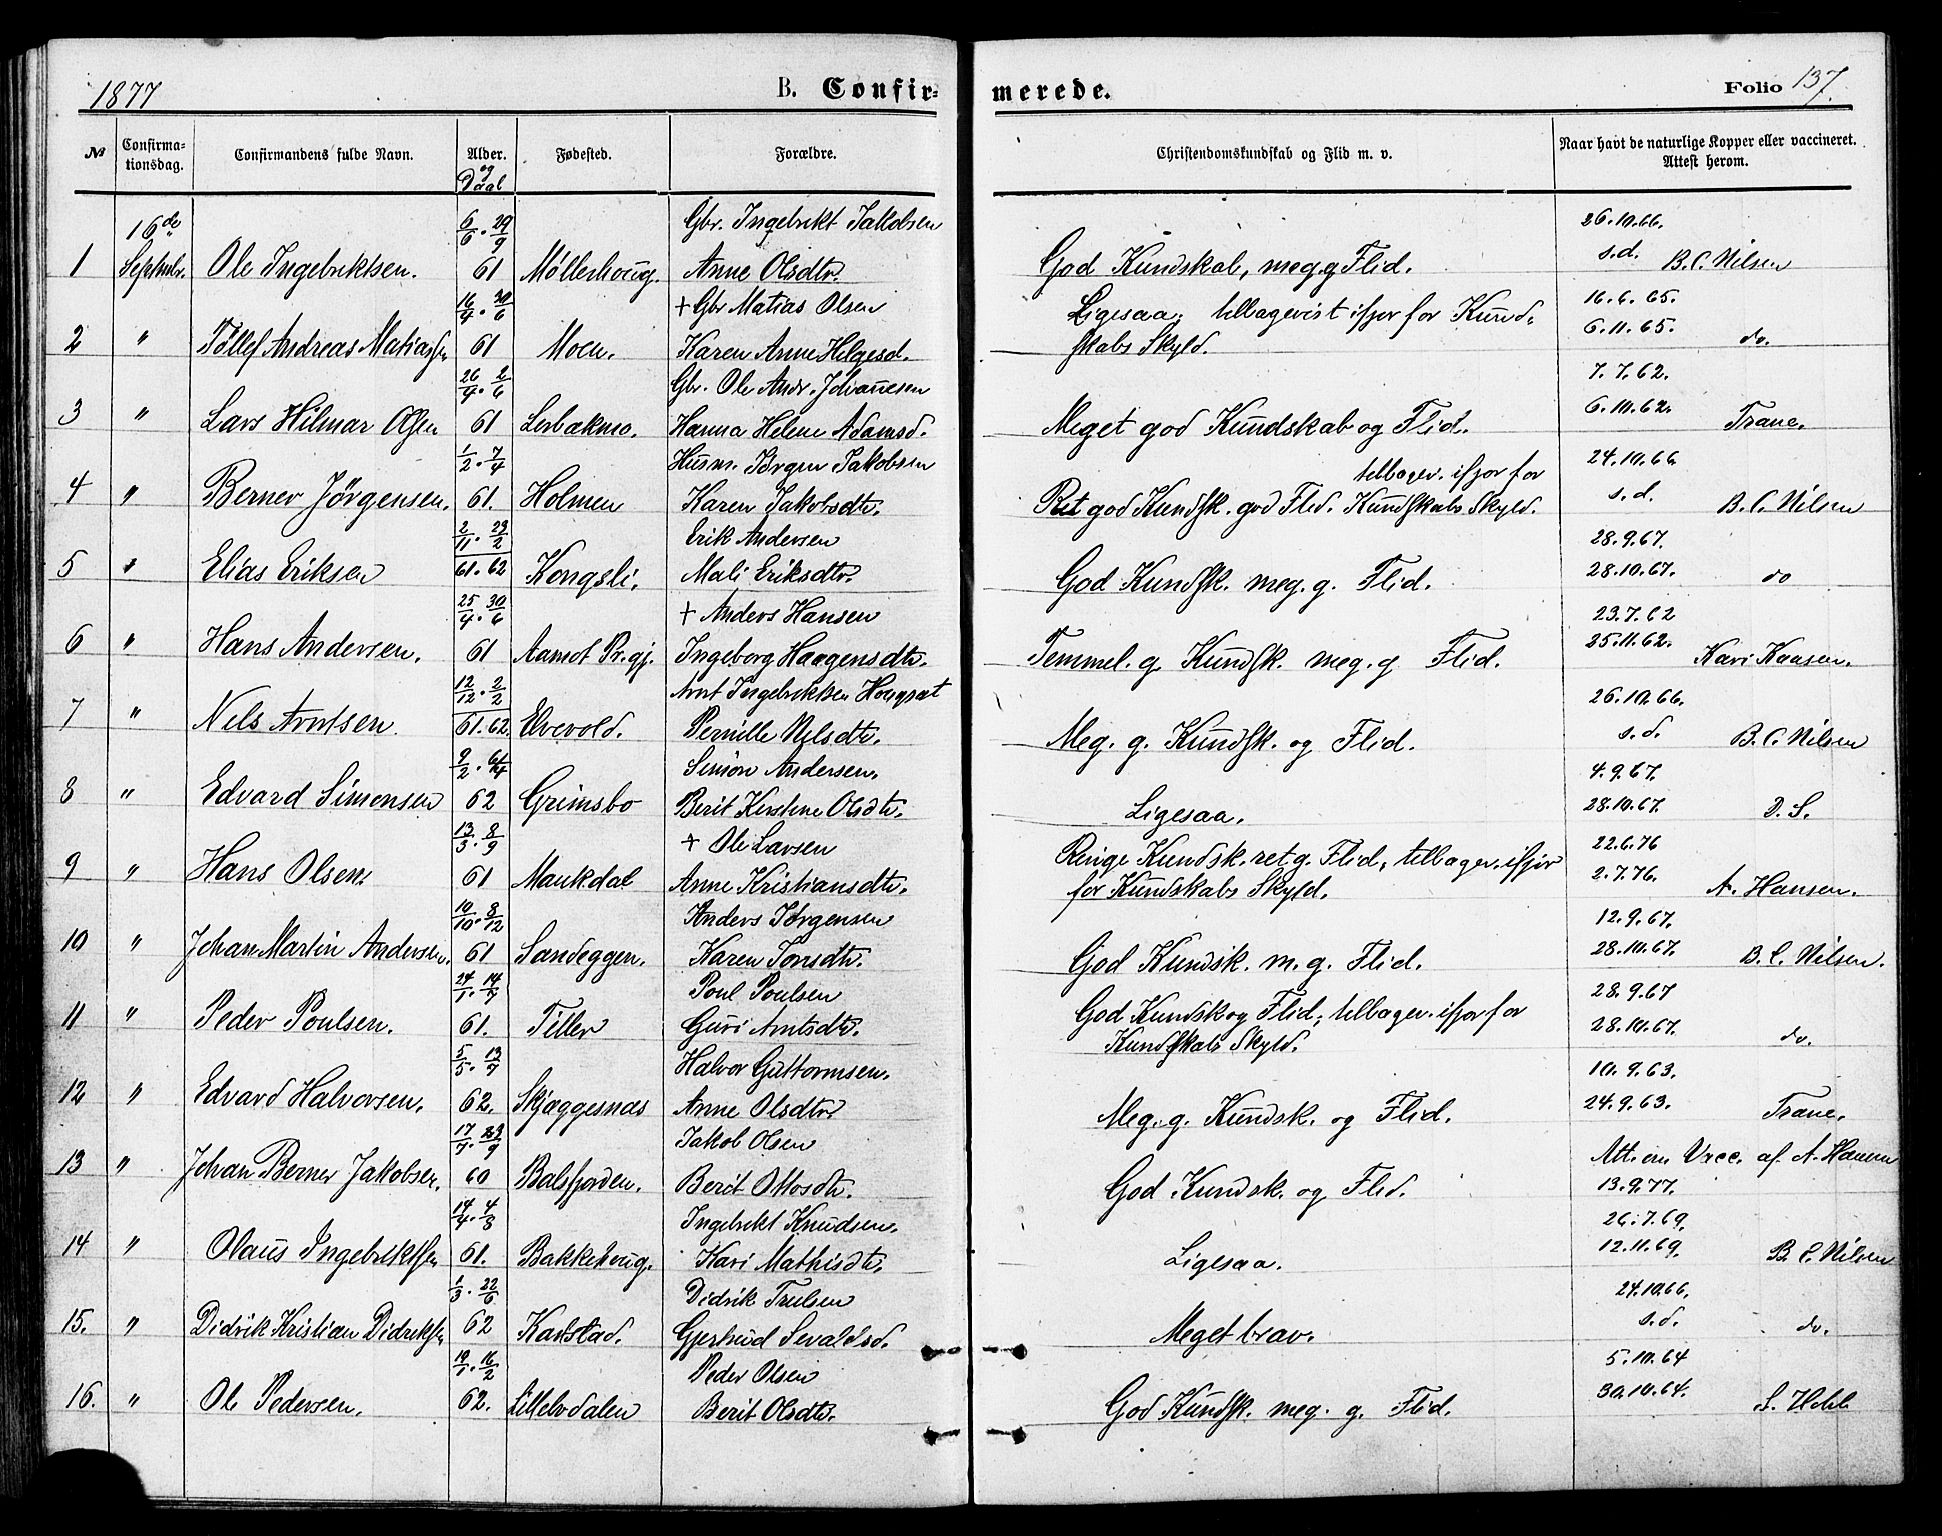 1877 B. Confirmerede. Folio 137.
№ Confirmationsdag. Confirmandens fulde Navn. Alder. og Daab Fødested. Forældre. Christendomskundskab og Flid m. v. Naar havt de naturlige Kopper eller vaccineret. Attest herom.
16de 6/6 . 29/9 Gbr. Ingebrikt Jakobsen 26.10.66.
1 Septmbr. Ole Ingebriktsen. 61 Møllerhoug. Anne Olsdtr. God Kundskab, meg. g Flid. s.d. B.C. Nilsen
16/4 . 30/6 + Gbr Matias Olsen Ligesaa; tilbagevist ifjor for Kund- 16.6.65.
2 " Tøllef Andreas Matiassen 61 Moen. Karen Anne Helgesd. skabs Skyld. 6.11.65. do.
26/4 . 2/6 Gbr. Ole Andr. Johannesen 7.7.62.
3 " Lars Hilmar Olsen 61 Lerbækmo. Hanna Helene Adamsd. Meget god Kundskab og Flid. 6.10.62. Trane.
1/2 . 7/4 Husm. Jørgen Jakobsen tilbagev. ifjor for 24.10.66.
4 " Berner Jørgensen. 61. Holmen Karen Jakobsdtr. Ret god Kundsk. god Flid. Kundskabs Skyld. s.d. B.C. Nilsen
2/11 . 23/2 Erik Andersen 28.9.67.
5 " Elias Eriksen 61.62 Kongsli. Mali Eriksdtr. God Kundsk. meg. g. Flid. 28.10.67. do
25/4 . 30/6 + Anders Hansen 23.7.62
6 " Hans Andersen. 61 Aamot Pr.gj. Ingeborg Haagensdtr. Temmel. g. Kundsk. meg. g Flid. 25.11.62. Kari Kaasen.
12/12 . 2/2 Arnt Ingebriktsen 26.10.66.
7 " Nils Arntsen 61.62. Elvevold. Pernille Nilsdtr. Meg. g. Kundsk. og Flid. s.d. B.C. Nilsen
9/2 . Simon Andersen. 4.9.67.
8 " Edvard Simonsen 62 Grimsbo Berit Kirstine Olsdtr. Ligesaa. 28.10.67. D. S.
13/3 . 8/9 + Ole Larsen Ringe Kundsk. ret g. Flid; tilbagev. ifjor 22.6.76
9 " Hans Olsen. 61 Maukdal Anne Kristiansdtr. for Kundskabs Skyld. 2.7.76. A. Hansen.
10/10 . 8/12 Anders Jørgensen 12.9.67.
10 " Johan Martin Andersen. 61 Sandeggen. Karen Tonsdtr. God Kundsk. m. g. Flid. 28.10.67. B.C. Nilsen.
24/1 . 14/7 Poul Poulsen God Kundsk og Flid; tilbagev. ifjor for 28.9.67
11 " Peder Poulsen. 61. Tiller Guri Arntsdtr. Kundskabs Skyld. 28.10.67. do.
5/5 . 13/7 Halvor Guttormsen. 10.9.63.
12 " Edvard Halvorsen. 62. Skjæggesnæs Anne Olsdtr Meg. g. Kundsk. og Flid. 24.9.63. Trane.
17/7 . 23/9 Jakob Olsen Att. om Vacc. af A. Hansen
13 " Johan Berner Jakobsen. 60 Balsfjorden. Berit Ottosdtr. God Kundsk. og Flid. 13.9.77.
14/4 . 4/8 Ingebrikt Knudsen. 26.7.69.
14 " Olaus Ingebriktsen 61. Bakkehoug. Kari Mathisdtr. Ligesaa. 12.11.69. B.C. Nilsen
1/3 . 22/6 Didrik Trulsen 24.10.66.
15. " Didrik Kristian Didriksen 62 Karlstad. Gjertrud Sevaldsd. Meget brav. s.d. do.
19/1 . 16/2 Peder Olsen 5.10.64
16. " Ole Pedersen. 62. Lillelvdalen Berit Olsdtr. God Kundsk. meg. g. Flid. 30.10.64. S. Hohl